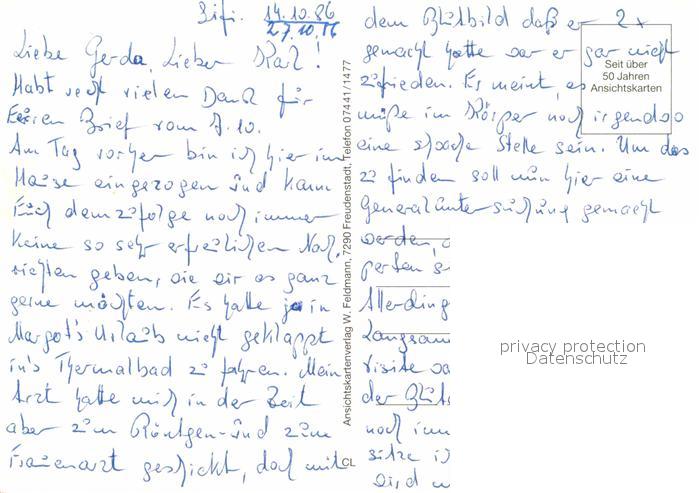 Bifi. 14.10.86
27.10.86
Liebe Gerda, Lieber Karl!
Habt recht vielen Dank für
Euren Brief vom 7.10.
Am Tag vorher bin ich hier im
Hause eingezogen und kann
Euch demzufolge noch immer
keine so sehr erfreulichen Nach-
richten geben, wie wir es ganz
gerne möchten. Es hatte ja in
Margot's Urlaub nicht geklappt
in's Thermalbad zu fahren. Mein
Arzt hatte mich in der Zeit
aber zum Röntgen- und zum
Frauenarzt geschickt, doch mit
dem Blutbild daß er 2x
gemacht hatte war er gar nicht
zufrieden. Er meint, es
müße im Körper noch irgendwo
eine schwache Stelle sein. Um das
zu finden soll nun hier eine
Generaluntersuchung gemacht
werden,
perten
Allerding
Langsam
visite
der Bluts
noch imm
sitze ich
wird
Ansichtskartenverlag W. Feldmann, 7290 Freudenstadt, Telefon 07441/1477
CL
Seit über
50 Jahren
Ansichtskarten
privacy protection
Datenschutz